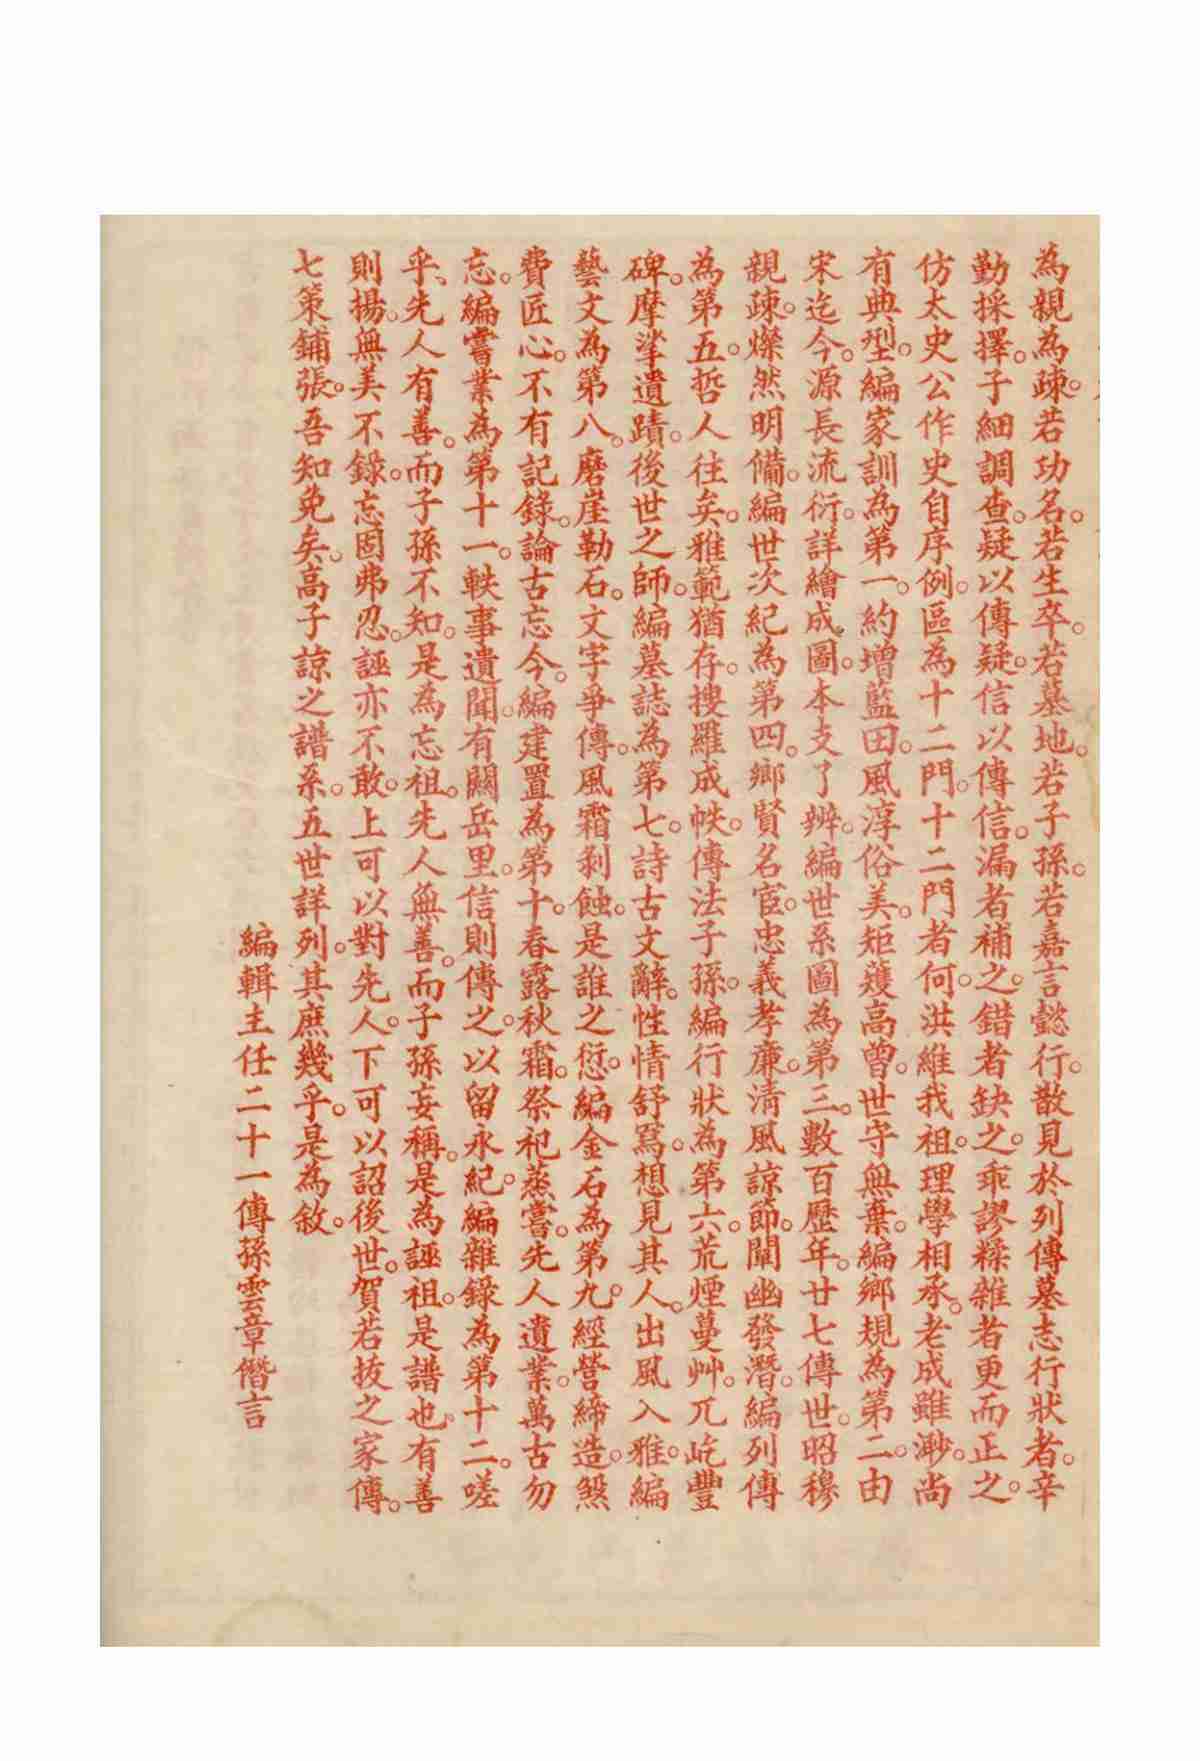 為親為疎。若功名。若生卒。若墓地。若子孫。若嘉言懿行。散見於列傳墓志行狀者。辛
勤採擇。子細調查。疑以傳疑。信以傳信。漏者補之。錯者缺之。乖謬糅雜者更而正之。
仿太史公作史自序例。區為十二門。十二門者何。洪維我祖。理學相承。老成雖渺。尚
有典型。編家訓為第一。約增藍田。風淳俗美。矩矱高曾。世守無棄。編鄉規為第二。由
宋迄今。源長流衍。詳繪成圖。本支了辨。編世系圖為第三。數百歷年。廿七傳世。昭穆
親疎。燦然明備。編世次紀為第四。鄉賢名宦。忠義孝廉。清風諒節。闡幽發潛。編列傳
為第五。哲人往矣。雅範猶存。搜羅成帙。傳法子孫。編行狀為第六。荒煙蔓艸。兀屹豐
碑。摩挲遺蹟。後世之師。編墓誌為第七。詩古文辭。性情舒寫。想見其人。出風入雅。編
藝文為第八。磨崖勒石。文字爭傳。風霜剝蝕。是誰之愆。編金石為第九。經營締造。煞
費匠心。不有記錄。論古忘今。編建置為第十。春露秋霜。祭祀蒸嘗。先人遺業。萬古勿
忘。編嘗業為第十一。軼事遺聞。有關岳里。信則傳之。以留永紀。編雜錄為第十二。嗟
乎。先人有善。而子孫不知。是為忘祖。先人無善。而子孫妄稱。是為誣祖。是譜也。有善
則揚。無美不錄。忘固弗忍。誣亦不敢。上可以對先人。下可以詔後世。賀若拔之家傳。
七策鋪張。吾知免矣。高子諒之譜系。五世詳列。其庶幾乎。是為敘。
編輯主任二十一傳孫雲章僭言